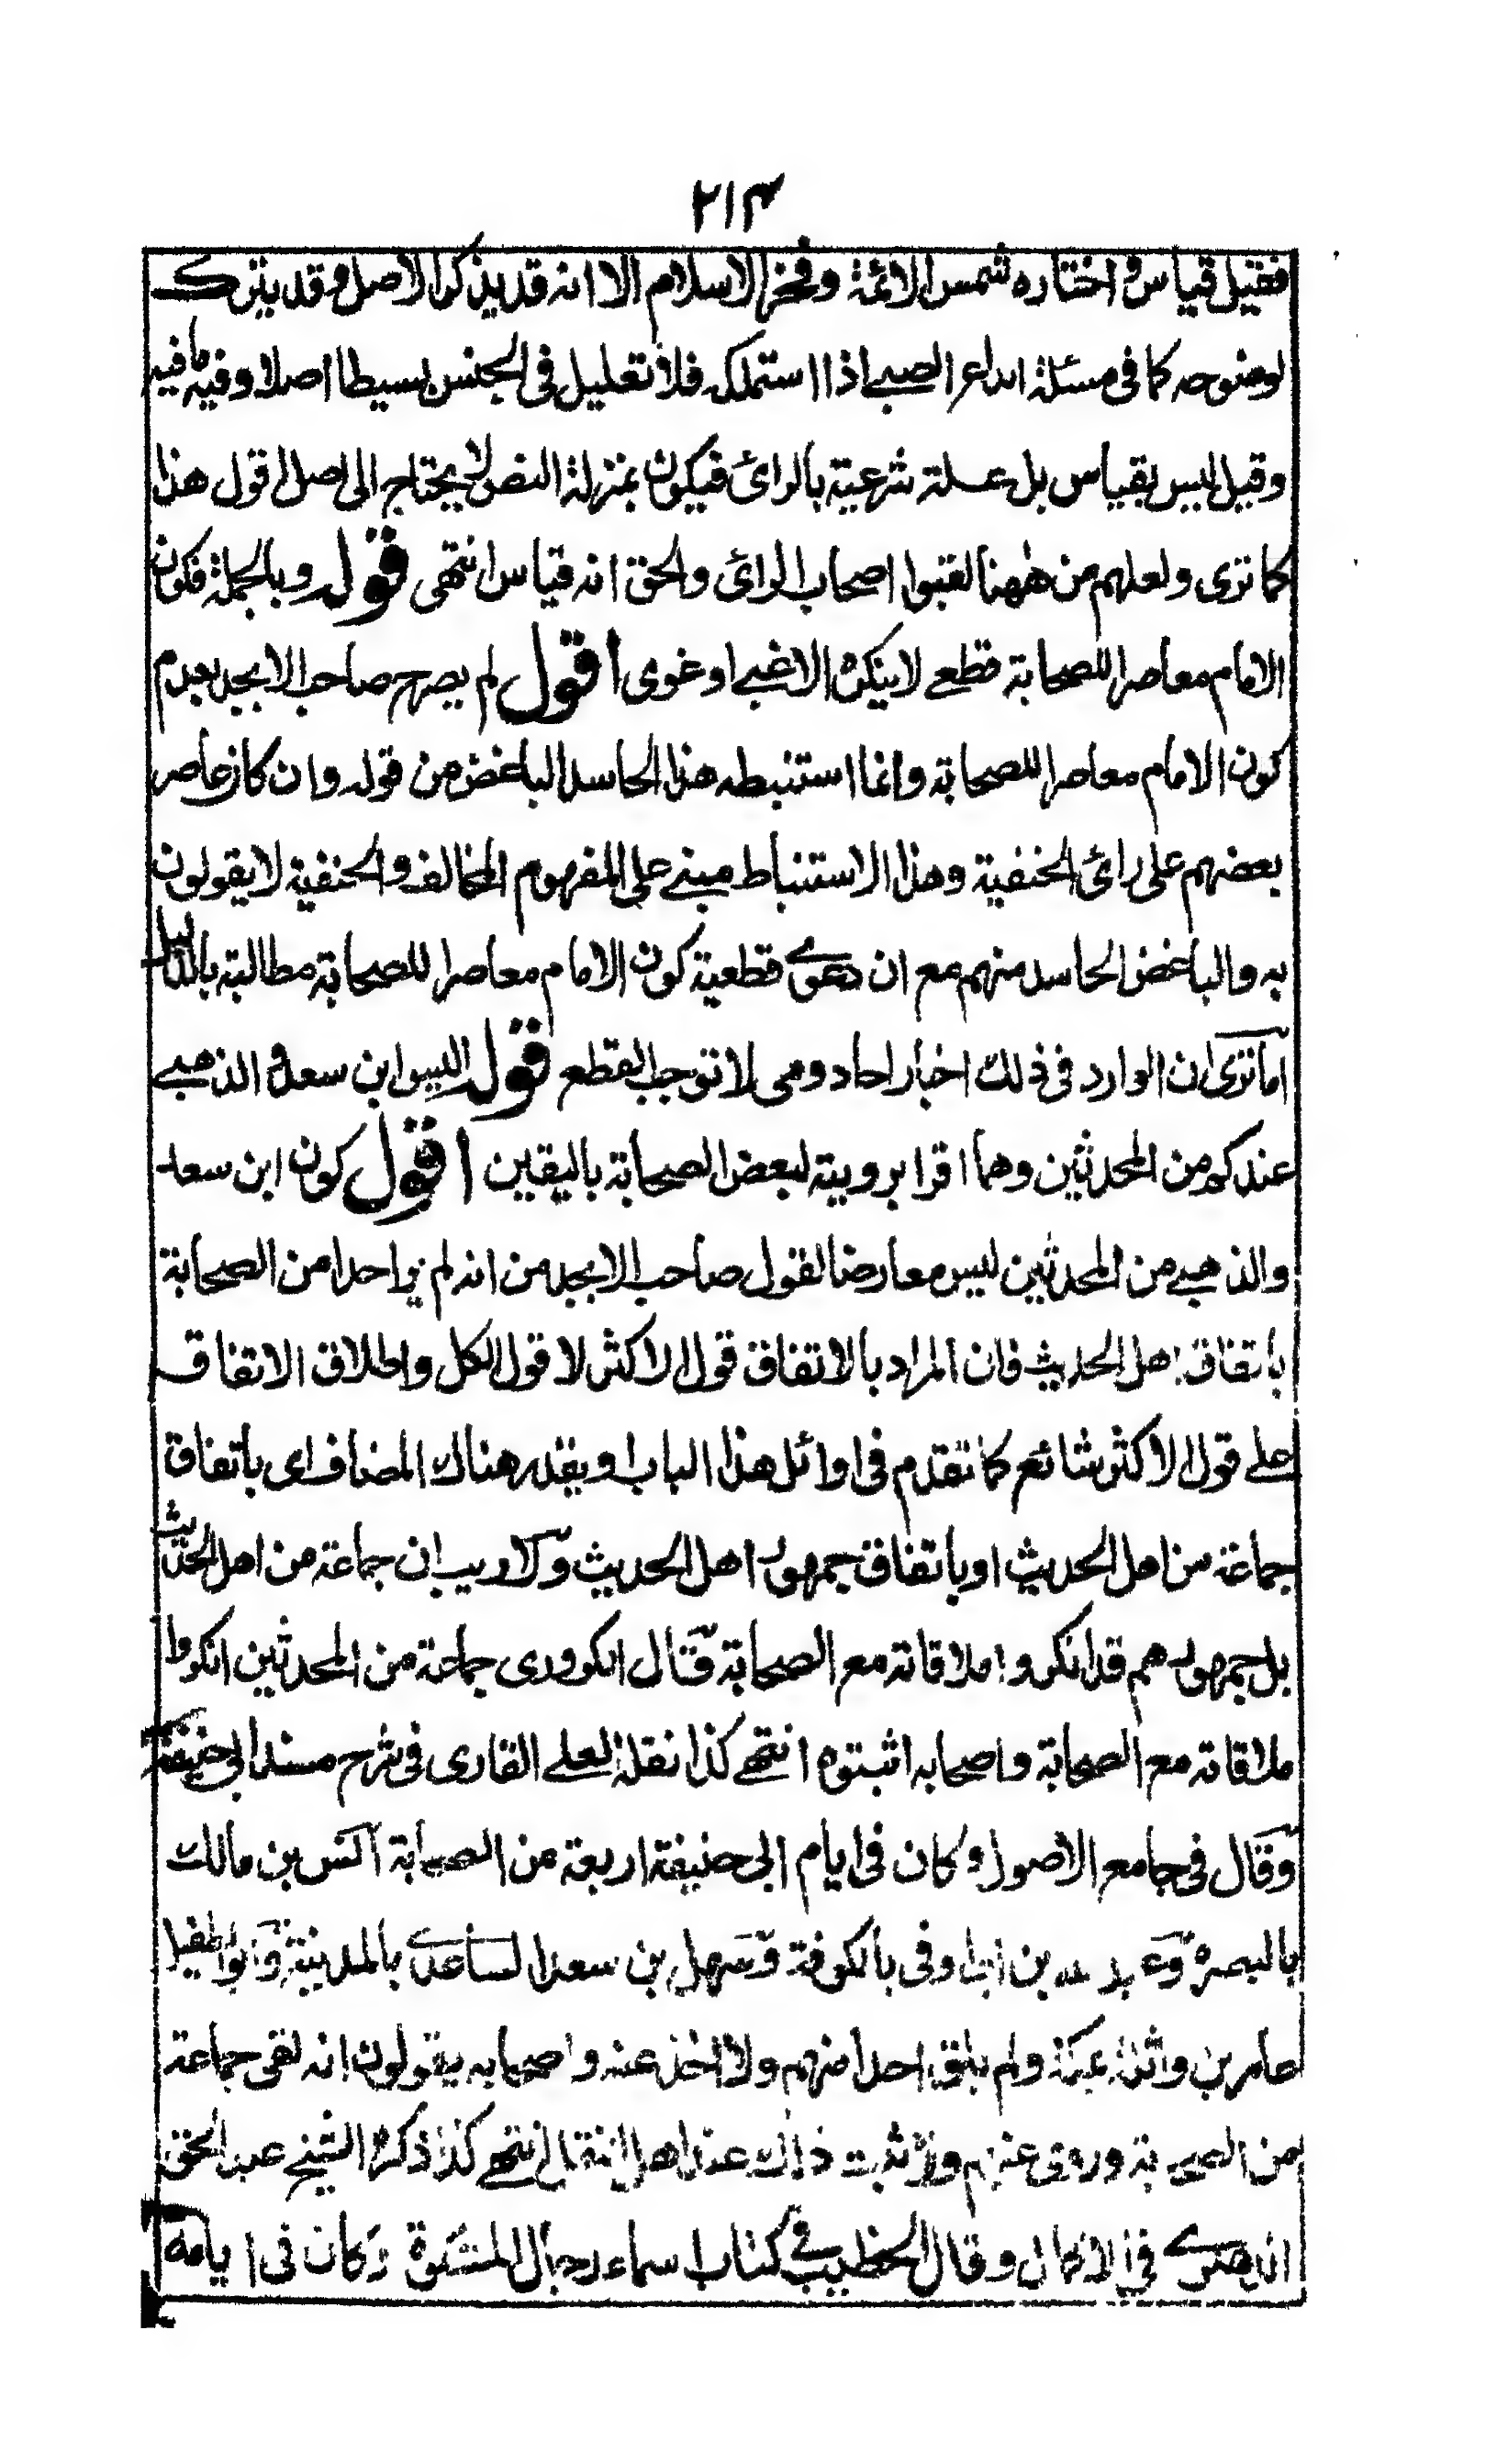 ٢١٣
فقيل قياس واختاره شمس الائمة وفخر الاسلام الا انه قد يذكر الاصل وقد يترك
لوضوحه كما في مسئلة ايداع الصبي اذا استملكه فلا تعليل في الجنس بسيطا اصلا وفيه ما فيه
وقيل ليس بقياس بل علة شرعية بالرائ فيكون بمنزلة النص لا يحتاج الى اصل اقول هذا
كما ترى ولعلهم من ههنا لقبوا اصحاب الرائ والحق انه قياس انتهى قوله وبالجملة فكون
الامام معاصرا للصحابة قطعي لا ينكره الا غبي او غوى اقول لم يصرح صاحب الابجد بعدم
كون الامام معاصرا للصحابة وانما استنبطه هذا الحاسد الباغض من قوله وان كان عاصر
بعضهم على رائ الحنفية وهذا الاستنباط مبني على المفهوم المخالف والحنفية لا يقولون
به والباغض الحاسد منهم مع ان دعوى قطعية كون الامام معاصرا للصحابة مطالبة بالدليل
اما ترى ان الوارد في ذلك اخبار احاد وهى لا توجب القطع قوله اليس ابن سعد والذهبي
عندكم من المحدثين وهما اقرا برويته لبعض الصحابة باليقين اقول كون ابن سعد
والذهبي من المحدثين ليس معارضا لقول صاحب الابجد من انه لم ير احدا من الصحابة
باتفاق اهل الحديث فان المراد بالاتفاق قول الاكثر لا قول الكل واطلاق الاتفاق
على قول الاكثر شائع كما تقدم في اوائل هذا الباب او يقدر هناك المضاف اى باتفاق
جماعة من اهل الحديث او باتفاق جمهور اهل الحديث ولا ريب ان جماعة من اهل الحديث
بل جمهورهم قد انكروا ملاقاته مع الصحابة قال الكردرى جماعة من المحدثين انكروا
ملاقاته مع الصحابة واصحابه اثبتوه انتهى كذا نقله العلي القارى في شرح مسند ابي حنيفة
وقال في جامع الاصول وكان في ايام ابي حنيفة اربعة من الصحابة انس بن مالك
بالبصرة وعبد الله بن ابي اوفى بالكوفة وسهل بن سعد الساعدي بالمدينة وابو الطفيل
عامر بن واثلة بمكة ولم يلق احدا منهم ولا اخذ عنه واصحابه يقولون انه لقى جماعة
من الصحابة وروى عنهم ولا يثبت ذلك عند اهل النقل انتهى كذا ذكره الشيخ عبد الحق
الدهلوي في الاكمال وقال الخطيب في كتاب اسماء رجال المشكوة وكان في ايامه